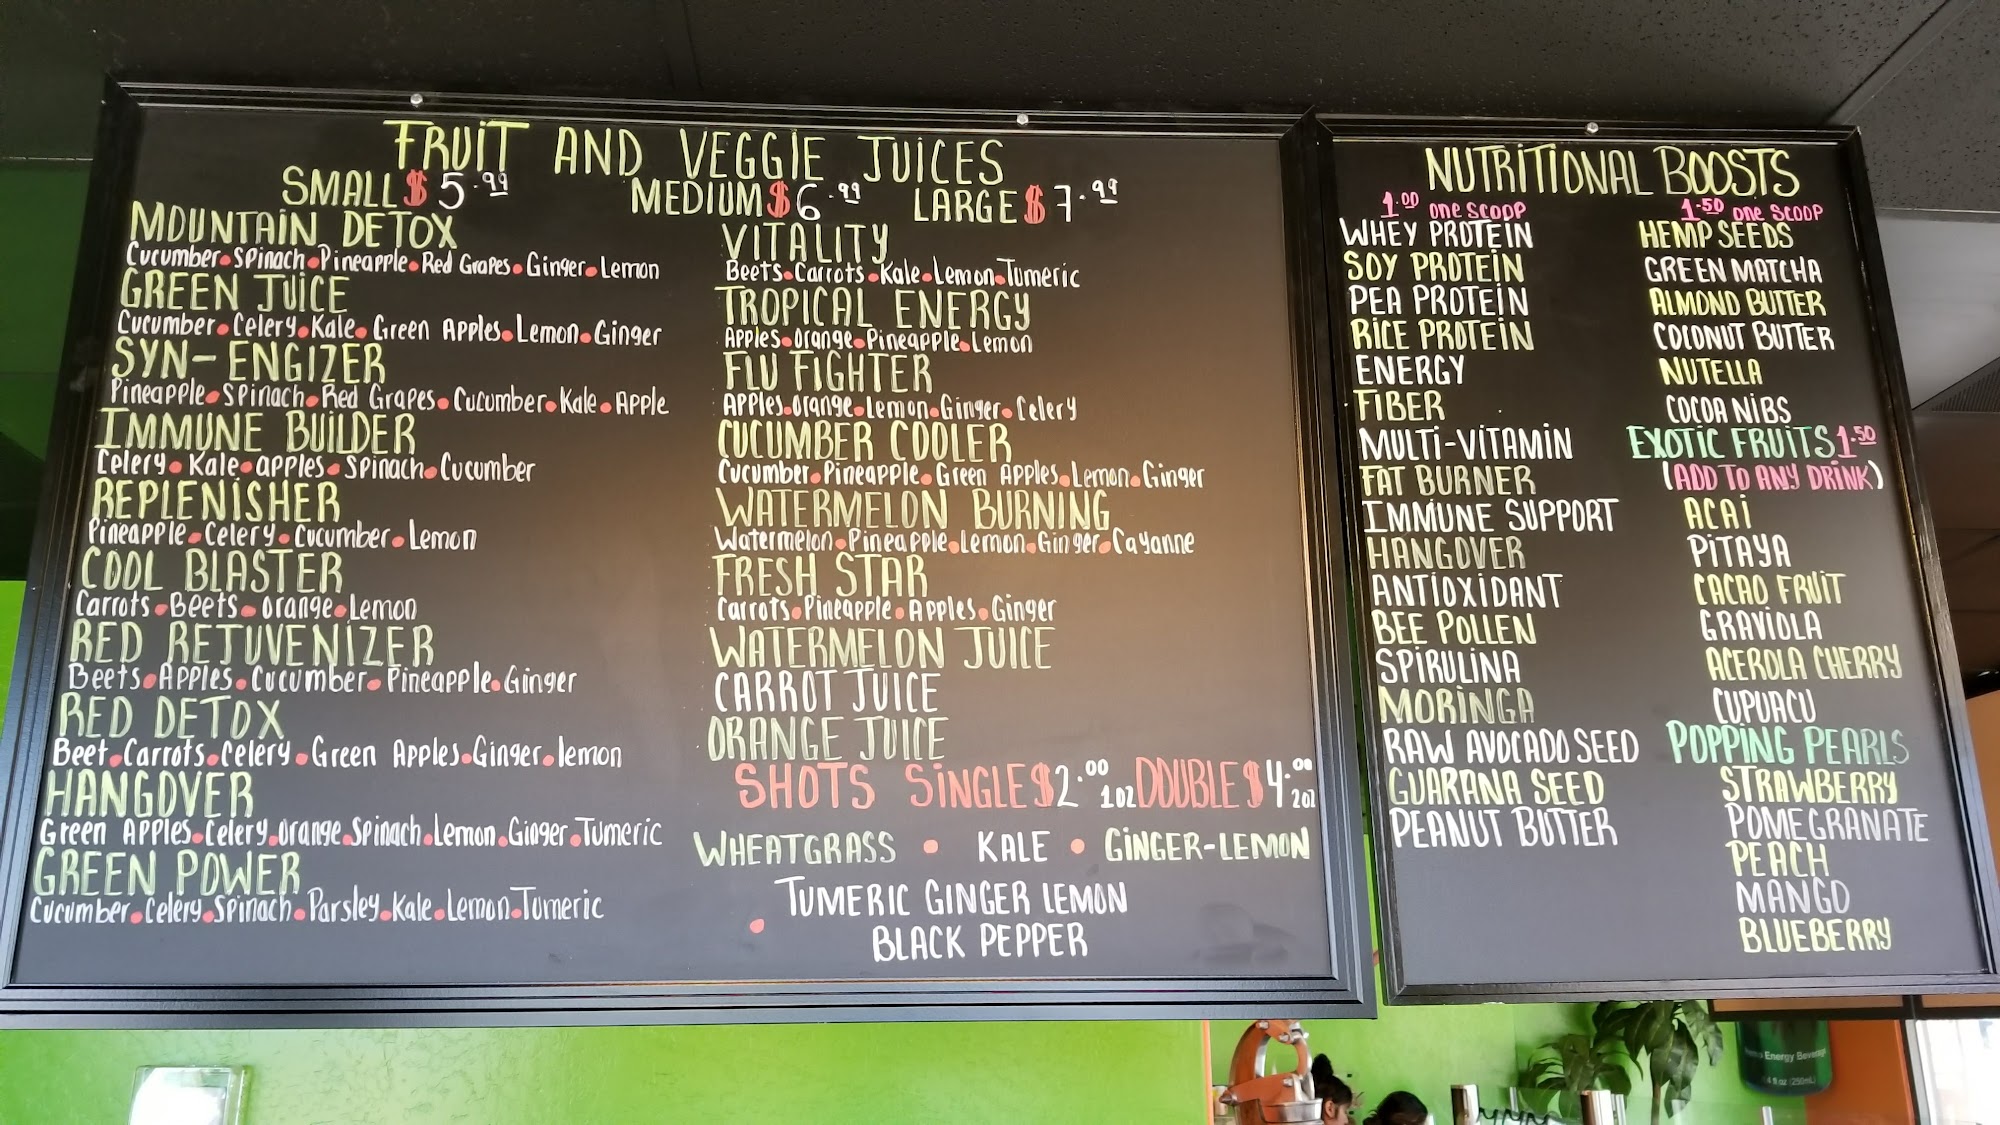 FRUIT AND VEGGIE JUICES
SMALL $5.99 MEDIUM $6.99 LARGE $7.99
MOUNTAIN DETOX
Cucumber • Spinach • Pineapple • Red Grapes • Ginger • Lemon
GREEN JUICE
Cucumber • Celery • Kale • Green Apples • Lemon • Ginger
SYN-ENGIZER
Pineapple • Spinach • Red Grapes • Cucumber • Kale • Apple
IMMUNE BUILDER
Celery • Kale • apples • Spinach • Cucumber
REPLENISHER
Pineapple • Celery • Cucumber • Lemon
COOL BLASTER
Carrots • Beets • orange • Lemon
RED REJUVENIZER
Beets • Apples • Cucumber • Pineapple • Ginger
RED DETOX
Beet • Carrots • Celery • Green Apples • Ginger • lemon
HANGOVER
Green Apples • Celery • orange • Spinach • Lemon • Ginger • Tumeric
GREEN POWER
Cucumber • Celery • Spinach • Parsley • Kale • Lemon • Tumeric
VITALITY
Beets • Carrots • Kale • Lemon • Tumeric
TROPICAL ENERGY
Apples • orange • Pineapple • Lemon
FLU FIGHTER
Apples • orange • Lemon • Ginger • Celery
CUCUMBER COOLER
Cucumber • Pineapple • Green Apples • Lemon • Ginger
WATERMELON BURNING
Watermelon • Pineapple • Lemon • Ginger • Cayanne
FRESH STAR
Carrots • Pineapple • Apples • Ginger
WATERMELON JUICE
CARROT JUICE
ORANGE JUICE
SHOTS SINGLE $2.00 1oz DOUBLE $4.00 2oz
WHEATGRASS • KALE • GINGER-LEMON
• TUMERIC GINGER LEMON
BLACK PEPPER
NUTRITIONAL BOOSTS
1.00 one scoop
WHEY PROTEIN
SOY PROTEIN
PEA PROTEIN
RICE PROTEIN
ENERGY
FIBER
MULTI-VITAMIN
FAT BURNER
IMMUNE SUPPORT
HANGOVER
ANTIOXIDANT
BEE POLLEN
SPIRULINA
MORINGA
RAW AVOCADO SEED
GUARANA SEED
PEANUT BUTTER
1.50 one scoop
HEMP SEEDS
GREEN MATCHA
ALMOND BUTTER
COCONUT BUTTER
NUTELLA
COCOA NIBS
EXOTIC FRUITS 1.50
(ADD TO ANY DRINK)
ACAI
PITAYA
CACAO FRUIT
GRAVIOLA
ACEROLA CHERRY
CUPUACU
POPPING PEARLS
STRAWBERRY
POMEGRANATE
PEACH
MANGO
BLUEBERRY
Energy Beverage
fl oz (250mL)